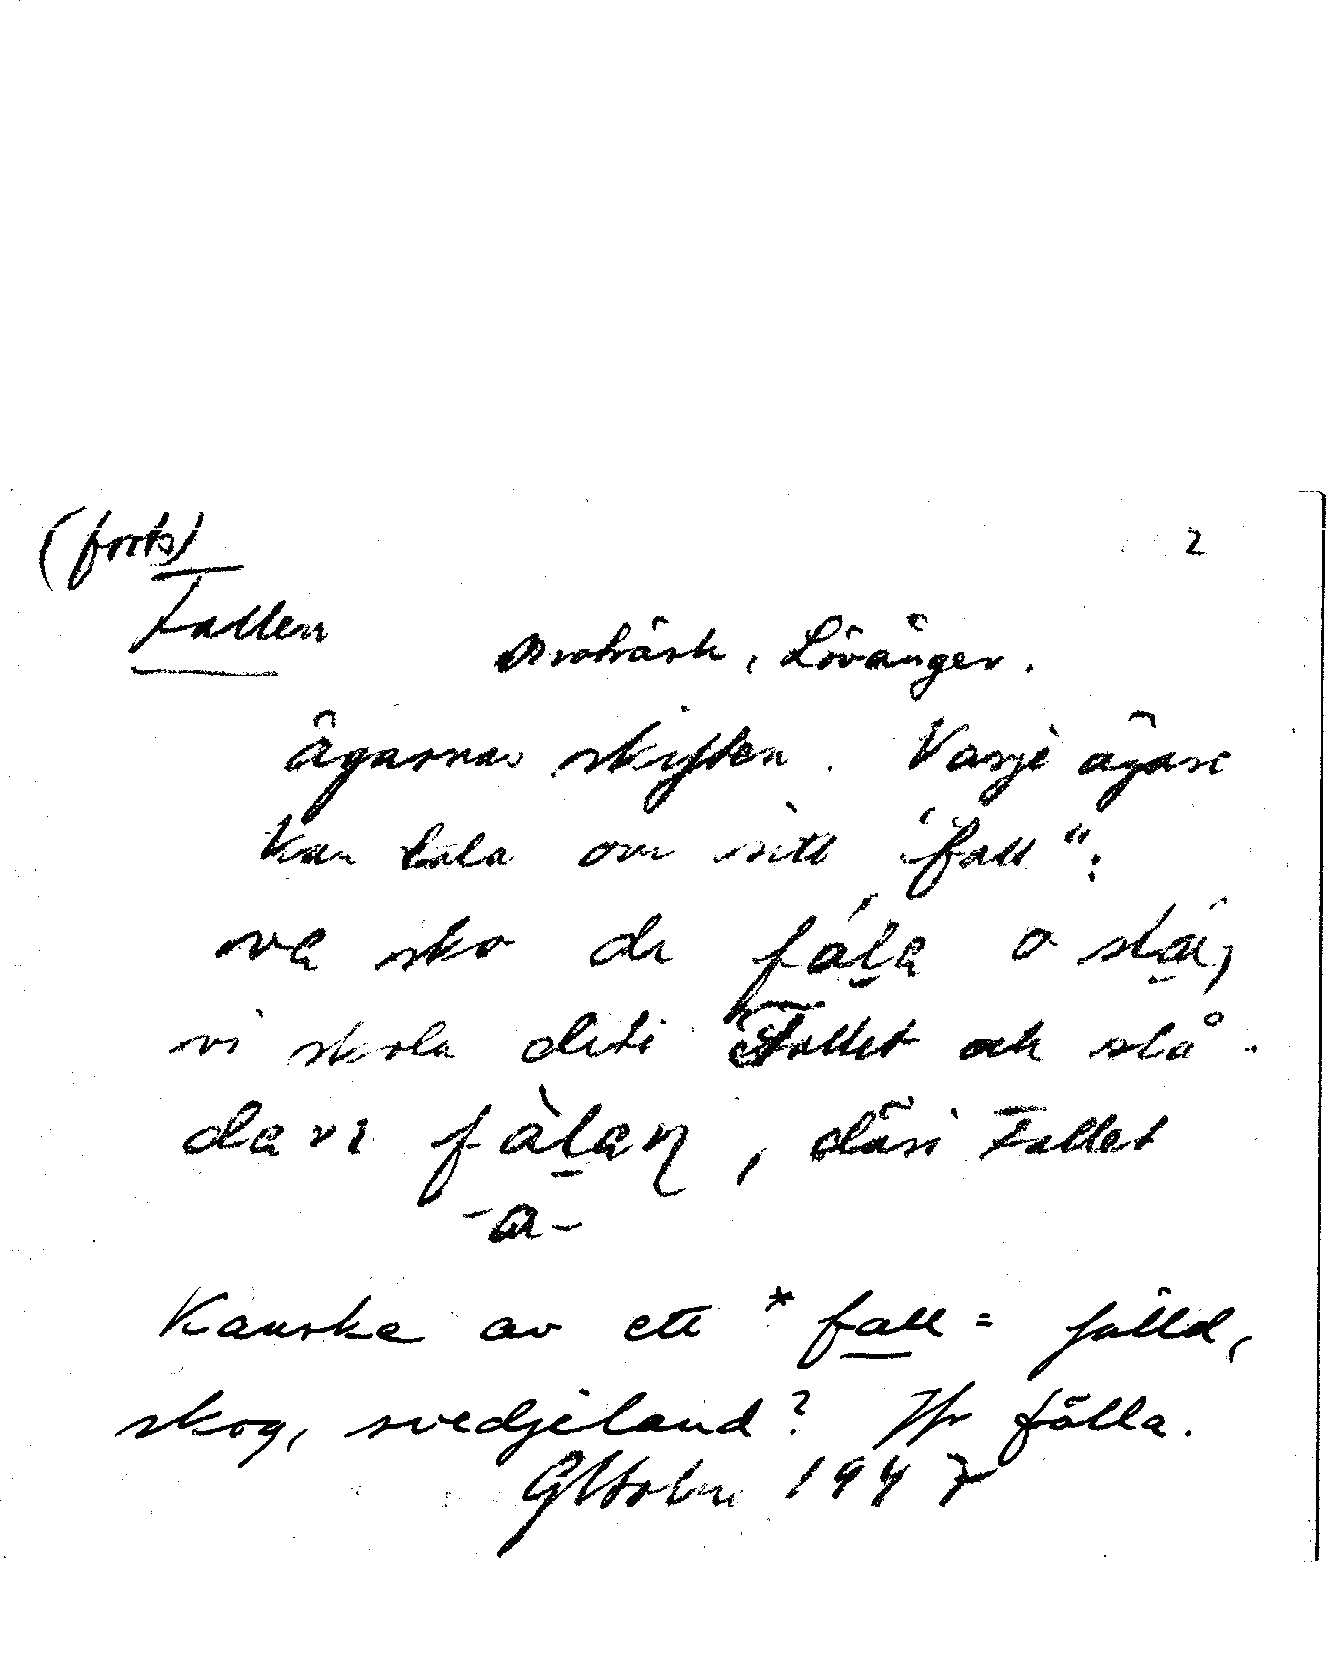 (forts) 2
Fallen
Broträsk, Lövånger.
ägarnas skiften. Varje ägare
kan tala om sitt "fall":
va sko di fála o slå,
vi skola diti Fallet och slå.
dari fàlan, däri Fallet
-a-
Kanske av ett *fall = fälld,
skog, svedjeland? Jfr fälla.
1947